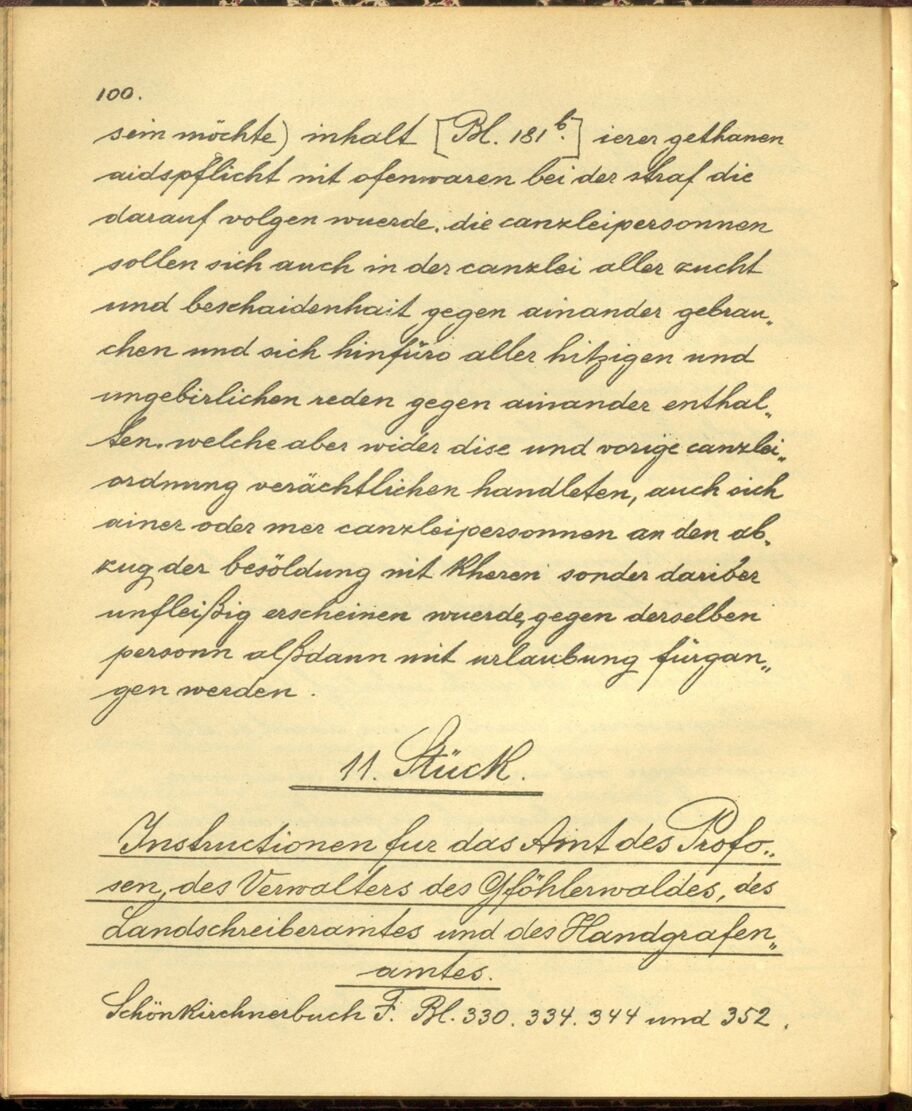 100.
sein möchte) inhalt [Bl. 181b.] ierer gethanen
aidspflicht nit ofenwaren bei der straf die
darauf volgen wuerde. die canzleipersonnen
sollen sich auch in der canzlei aller zucht
und beschaidenhait gegen ainander gebrau„
chen und sich hinfüro aller hitzigen und
ungebirlichen reden gegen ainander enthal„
ten. welche aber wider dise und vorige canzlei„
ordnung verächtlichen handleten, auch sich
ainer oder mer canzleipersonnen an den ab„
zug der besöldung nit kheren sonder dariber
unfleißig erscheinen wuerde, gegen derselben
personn alßdann mit urlaubung fürgan„
gen werden.
11. Stück.
Instructionen fur das Amt des Profo„
sen, des Verwalters des Gföhlerwaldes, des
Landschreiberamtes und des Handgrafen„
amtes.
Schönkirchnerbuch F. Bl. 330. 334. 344 und 352.